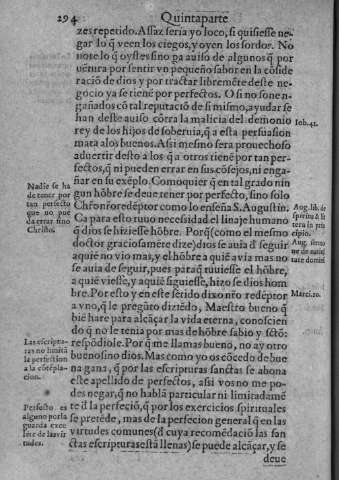 294 Quintaparte
zes repetido. Assaz seria yo loco, si quisiesse ne
gar lo q̃ veen los ciegos, y oyen los sordos. No
note lo q̃ oystes sino ga auiso de algunos q̃ por
uẽtura por sentir vn pequeño sabor en la cõside
raciõ de dios y por tractar libremẽte deste ne-
gocio ya se tienẽ por perfectos. O si no son en-
gañados cõ tal reputaciõ de si mismo, ayudar se
han deste auiso cõtra la malicia del demonio
rey de los hijos de soberuia, q̃ a esta persuasion
mata alos buenos. Assi mesmo sera prouechoso
aduertir desto a los q̃ a otros tienẽ por tan per-
fectos, q̃ ni pueden errar en sus cõsejos, ni enga-
ñar en su exẽplo. Como quier q̃ en tal grado nin
gun hõbre se deue tener por perfecto, sino solo
Chr̃o nr̃o redẽptor como lo enseña S. Augustin.
Ca para esto tuuo necessidad el linaje humano
q̃ dios se hiziesse hõbre. Porq̃ (como el mesmo
doctor graciosamẽre dize) dios se auia đ seguir
aquiẽ no vio mas, y el hõbre a quiẽ avia mas no
se auia de seguir, pues paraq̃ tuuiesse el hõbre,
a quiẽ viesse, y aquiẽ siguiesse, hizo se dios hom
bre. Por esto y en este sẽtido dixo nr̃o redẽptor
a vno, q̃ le pregũto diziẽdo, Maestro bueno q̃
biẽ hare para alcãçar la vida eterna, conoscien
do q̃ no le tenia por mas de hõbre sabio y sctõ:
respõdiole. Por q̃ me llamas bueno, no ay otro
bueno sino dios. Mas como yo os cõcedo de bue
na gana, q̃ por las escripturas sanctas se abona
este apellido de perfectos, assi vos no me po-
des negar, q̃ no hablã particular ni limitadamẽ
te đ la perfeciõ, q̃ por los exercicios spirituales
se pretẽde, mas de la perfecion general q̃ en las
virtudes comunes (đ cuya recomẽdaciõ las san
ctas escripturas està llenas) se puede alcãçar, y se
deue
Iob. 41.
Nadie se ha
de tener por
tan perfecto
que no pue
da errar sino
Christo.
Aug. lib. de
spiritu & li
tera in prin
cipio.
Aug. sermo
ne de natiui
tate domini
Marci. 10.
Las escriptu-
ras no limitã
la perfection
a la cõtẽpla-
cion.
Perfecto es
alguno por la
guarda exce
lẽte de las vir
tudes.